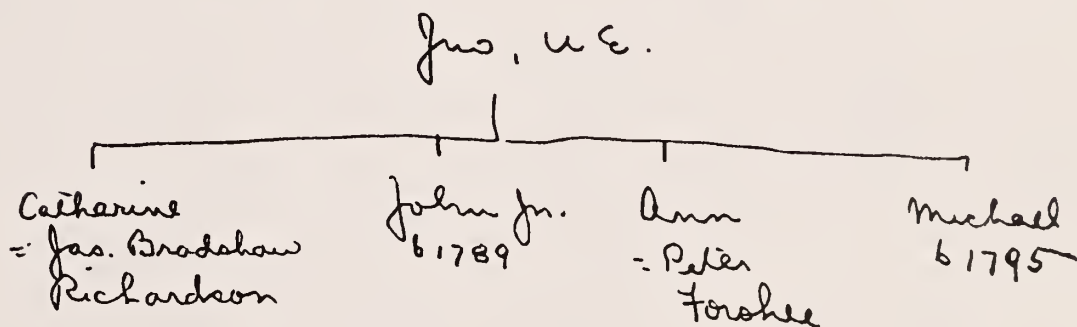 Jno, U E.
Catharine
= Jas. Bradshaw
Richardson
John Jr.
b 1789
Ann
= Peter
Forshee
Michael
b 1795